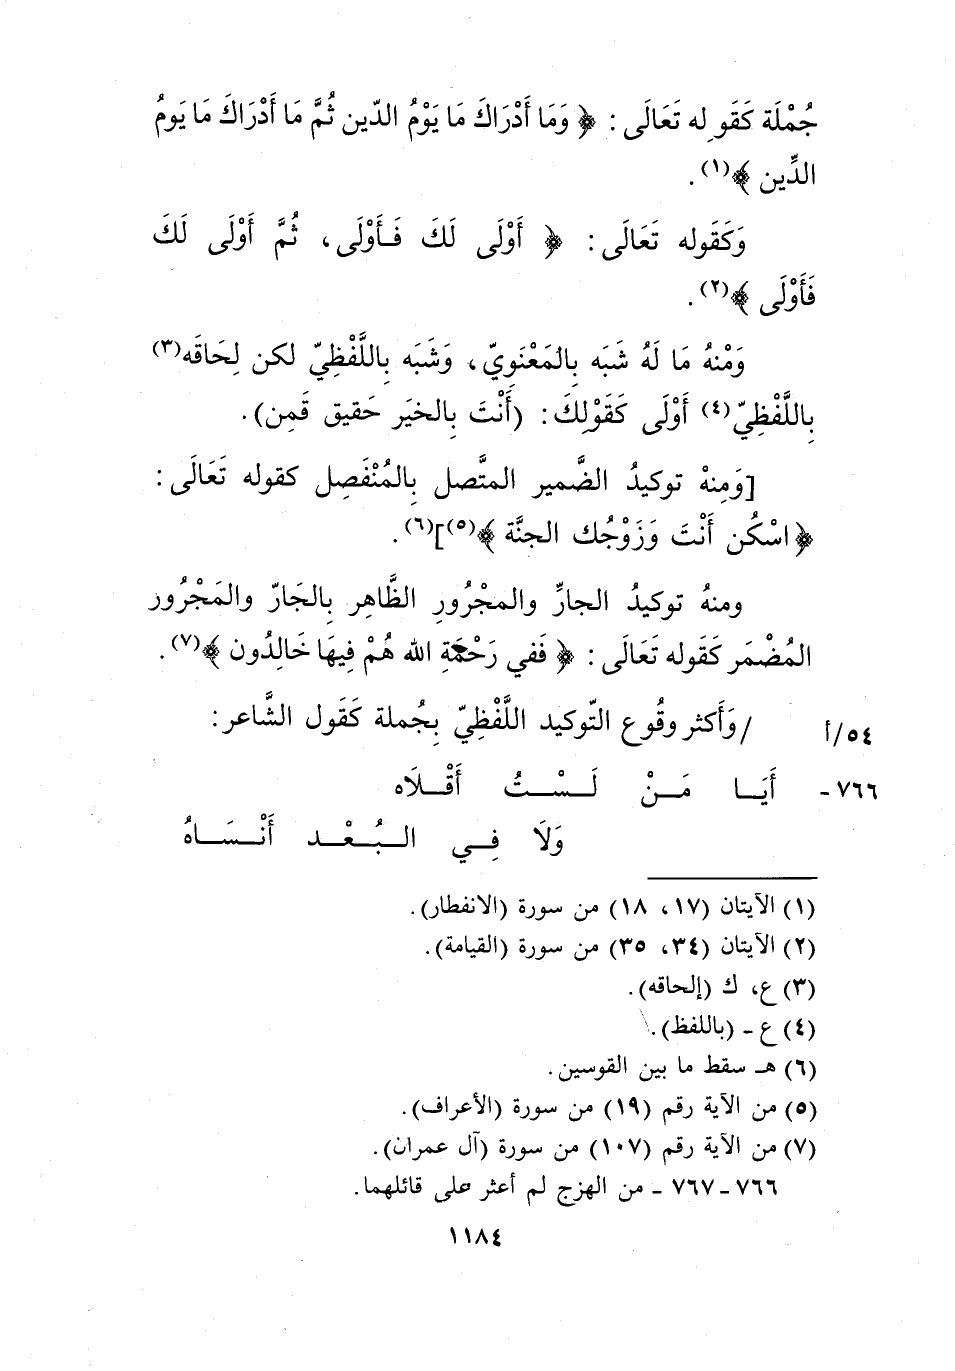 جُمْلَة كَقَوِله تَعَالَى: ﴿ وَمَا أَدْرَاكَ مَا يَوْمُ الدّين ثُمَّ مَا أَدْرَاكَ مَا يَومُ
الدِّين ﴾(١).
وَكَقَوله تَعَالَى: ﴿ أَوْلَى لَكَ فَأَوْلَى، ثُمَّ أَوْلَى لَكَ
فَأَوْلَى ﴾(٢).
وَمْنهُ مَا لَهُ شَبَه بِالمَعْنَويّ، وَشَبَه بِاللَّفْظِيّ لكن لِحَاقَه(٣)
بِاللَّفْظِيّ(٤) أَوْلَى كَقَوْلِكَ: (أَنْتَ بِالخيَر حَقيق قَمِن).
[وَمِنهْ توكيدُ الضَّمير المتَّصل بِالمُنْفَصِل كقوله تَعَالَى:
﴿اسْكُن أَنْتَ وَزَوْجُك الجنَّة ﴾(٥)](٦).
ومنهُ توكيدُ الجارِّ والمجْرُورِ الظَّاهِر بِالجَارّ والمَجْرُور
المُضْمَر كَقَوله تَعَالَى: ﴿ فَفي رَحْمَةِ الله هُمْ فِيهَا خَالِدُون ﴾(٧).
٥٤/أ /وَأَكثر وقُوع التّوكيد اللَّفْظِيّ بِجُملة كَقَول الشَّاعر:
٧٦٦- أَيَـا مَـنْ لَـسْـتُ أَقْـلَاه
وَلَا فِـي الـبُـعْـد أَنْـسَـاهُ
(١) الآيتان (١٧، ١٨) من سورة (الانفطار).
(٢) الآيتان (٣٤، ٣٥) من سورة (القيامة).
(٣) ع، ك (إلحاقه).
(٤) ع - (باللفظ).
(٦) هـ سقط ما بين القوسين.
(٥) من الآية رقم (١٩) من سورة (الأعراف).
(٧) من الآية رقم (١٠٧) من سورة (آل عمران).
٧٦٦ - ٧٦٧ - من الهزج لم أعثر على قائلهما.
١١٨٤